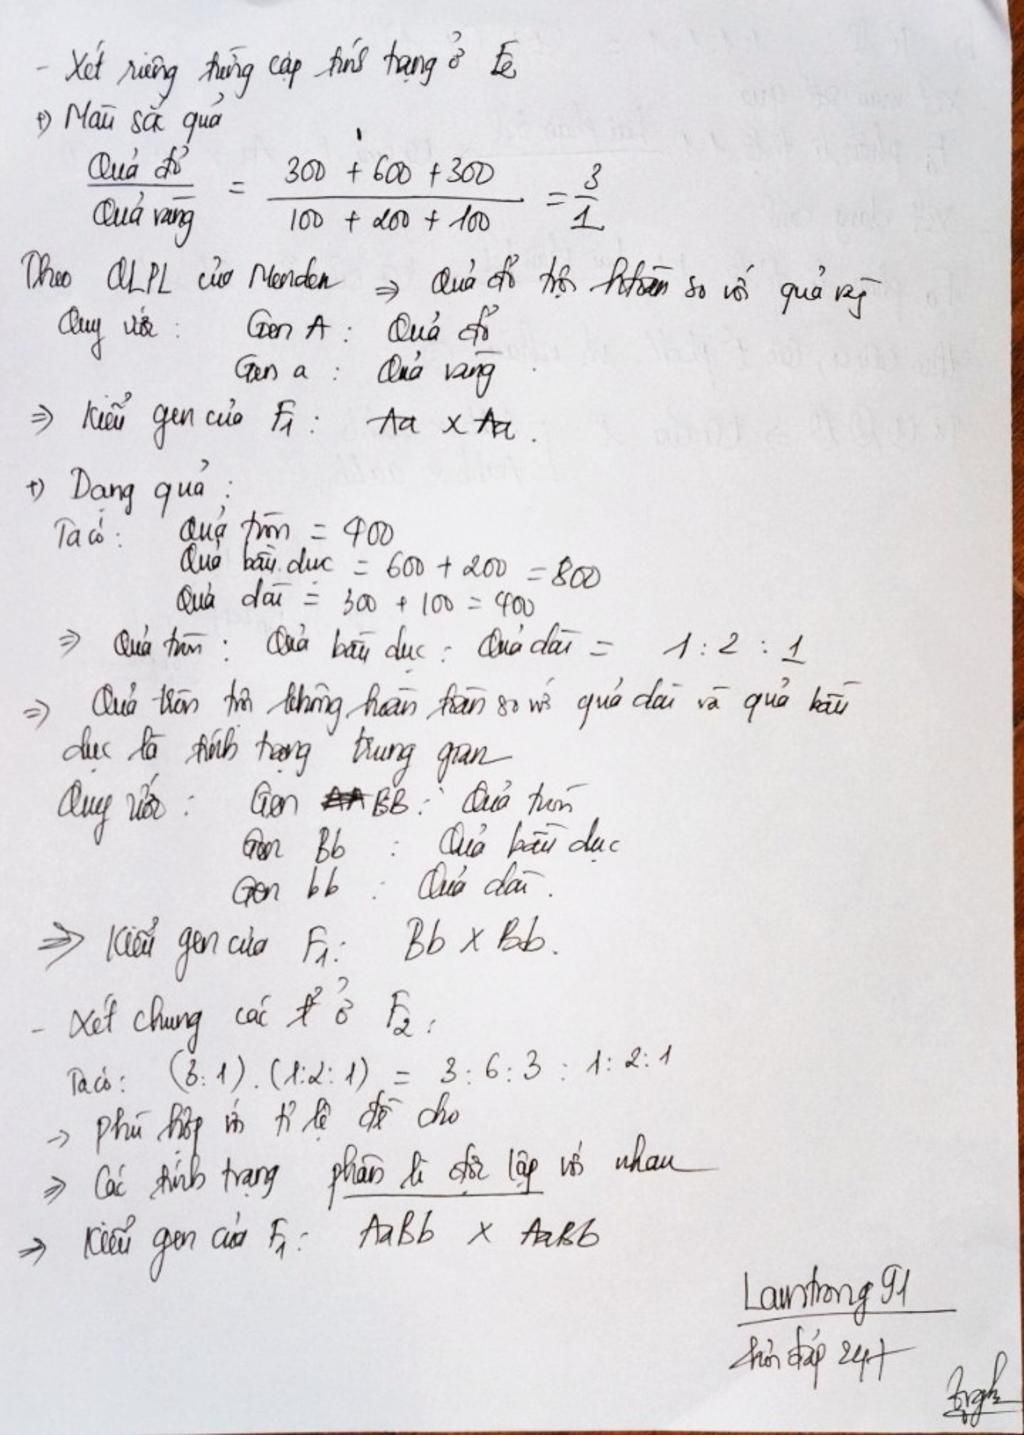 - Xét riêng từng cặp tính trạng ở F2
+) Màu sắc quả
Quả đỏ / Quả vàng = 300 + 600 + 300 / 100 + 200 + 100 = 3 / 1
Theo QLPL của Menden => Quả đỏ trội htoàn so với quả vàg
Quy ước : Gen A : Quả đỏ
Gen a : Quả vàng
=> Kiểu gen của F1 : Aa x Aa.
+) Dạng quả :
Ta có : Quả tròn = 400
Quả bầu dục = 600 + 200 = 800
Quả dài = 300 + 100 = 400
=> Quả tròn : Quả bầu dục : Quả dài = 1 : 2 : 1
=> Quả tròn trội không hoàn toàn so với quả dài và quả bầu
dục là tính trạng trung gian
Quy ước : Gen BB : Quả tròn
Gen Bb : Quả bầu dục
Gen bb : Quả dài.
=> Kiểu gen của F1 : Bb x Bb.
- Xét chung các t² ở F2 :
Ta có : (3:1).(1:2:1) = 3:6:3:1:2:1
-> phù hợp với tỉ lệ đề cho
=> Các tính trạng phân li độc lập với nhau
=> Kiểu gen của F1 : AaBb x AaBb
Lawtrong91
hỏi đáp 247